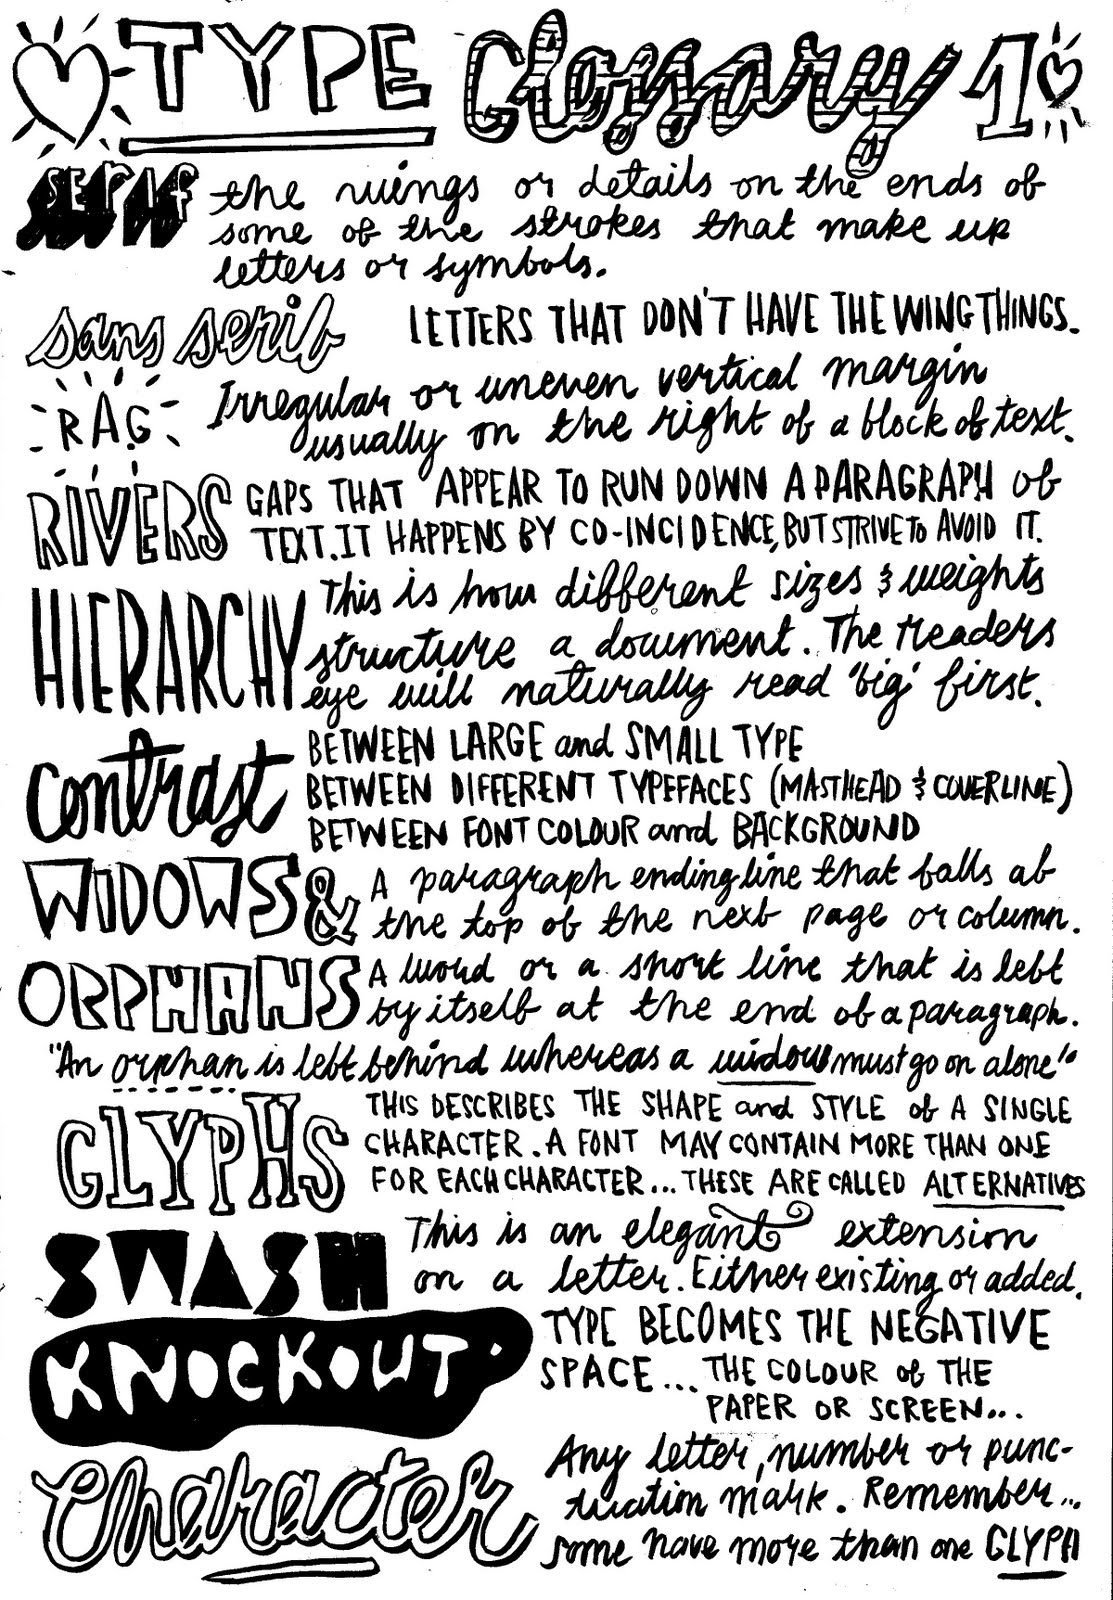 TYPE Glossary 1
SERIF the wings or details on the ends of
some of the strokes that make up
letters or symbols.
sans serif LETTERS THAT DON'T HAVE THE WING THINGS.
RAG Irregular or uneven vertical margin
usually on the right of a block of text.
RIVERS GAPS THAT APPEAR TO RUN DOWN A PARAGRAPH of
TEXT. IT HAPPENS BY CO-INCIDENCE, BUT STRIVE To AVOID IT.
HIERARCHY This is how different sizes & weights
structure a document. The readers
eye will naturally read 'big' first.
contrast BETWEEN LARGE and SMALL TYPE
BETWEEN DIFFERENT TYPEFACES (MASTHEAD & COVERLINE)
BETWEEN FONT COLOUR and BACKGROUND
WIDOWS & A paragraph ending line that falls at
the top of the next page or column.
ORPHANS A word or a short line that is left
by itself at the end of a paragraph.
"An orphan is left behind whereas a widow must go on alone"
GLYPHS THIS DESCRIBES THE SHAPE and STYLE of A SINGLE
CHARACTER. A FONT MAY CONTAIN MORE THAN ONE
FOR EACH CHARACTER... THESE ARE CALLED ALTERNATIVES
SWASH This is an elegant extension
on a letter. Either existing or added.
KNOCKOUT TYPE BECOMES THE NEGATIVE
SPACE... THE COLOUR of THE
PAPER OR SCREEN...
Character Any letter, number or punc-
tuation mark. Remember...
some have more than one GLYPH